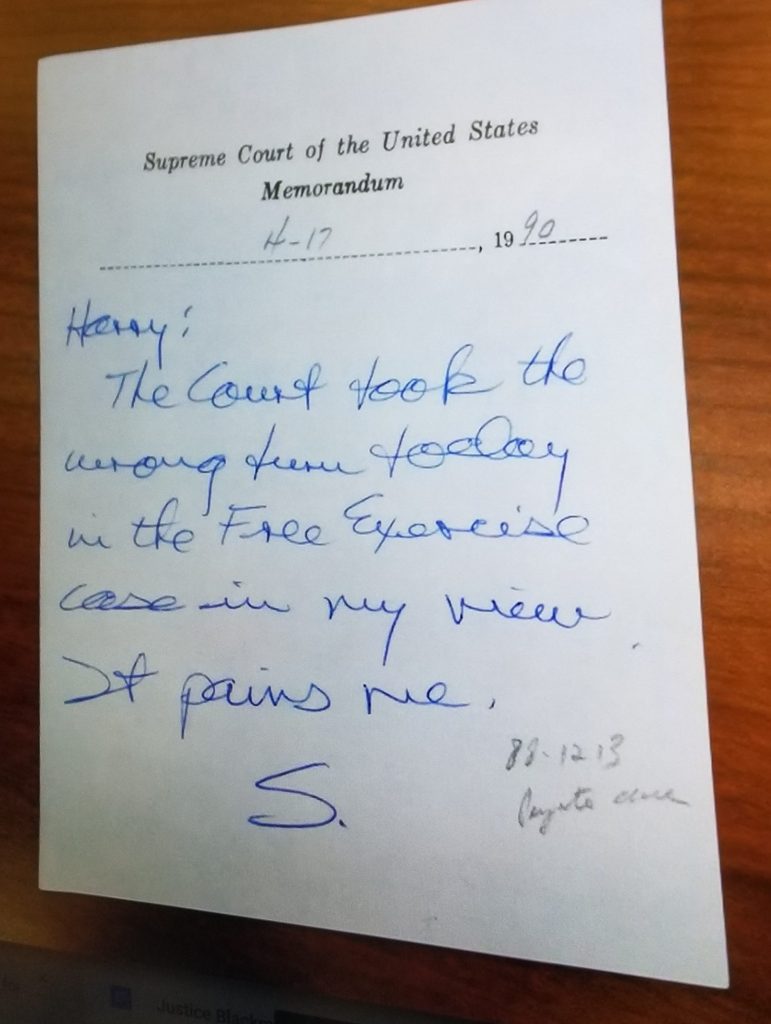 Supreme Court of the United States
Memorandum
4-17, 1990
Harry:
The Court took the
wrong turn today
in the Free Exercise
case in my view.
It pains me.
S.
88-1213
Peyote case
Justice Blackm